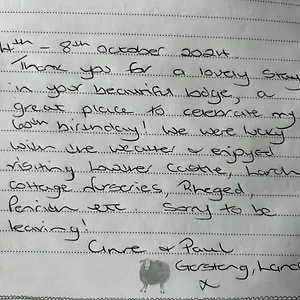 4th - 8th October 2024
Thank you for a lovely stay
in your beautiful lodge, a
great place to celebrate my
60th birthday! We were lucky
with the weather & enjoyed
visiting Lowther Castle, Larch
cottage nurseries, Rheged,
Penrith etc. Sorry to be
leaving!
Anne & Paul
Garstang, Lancs
x